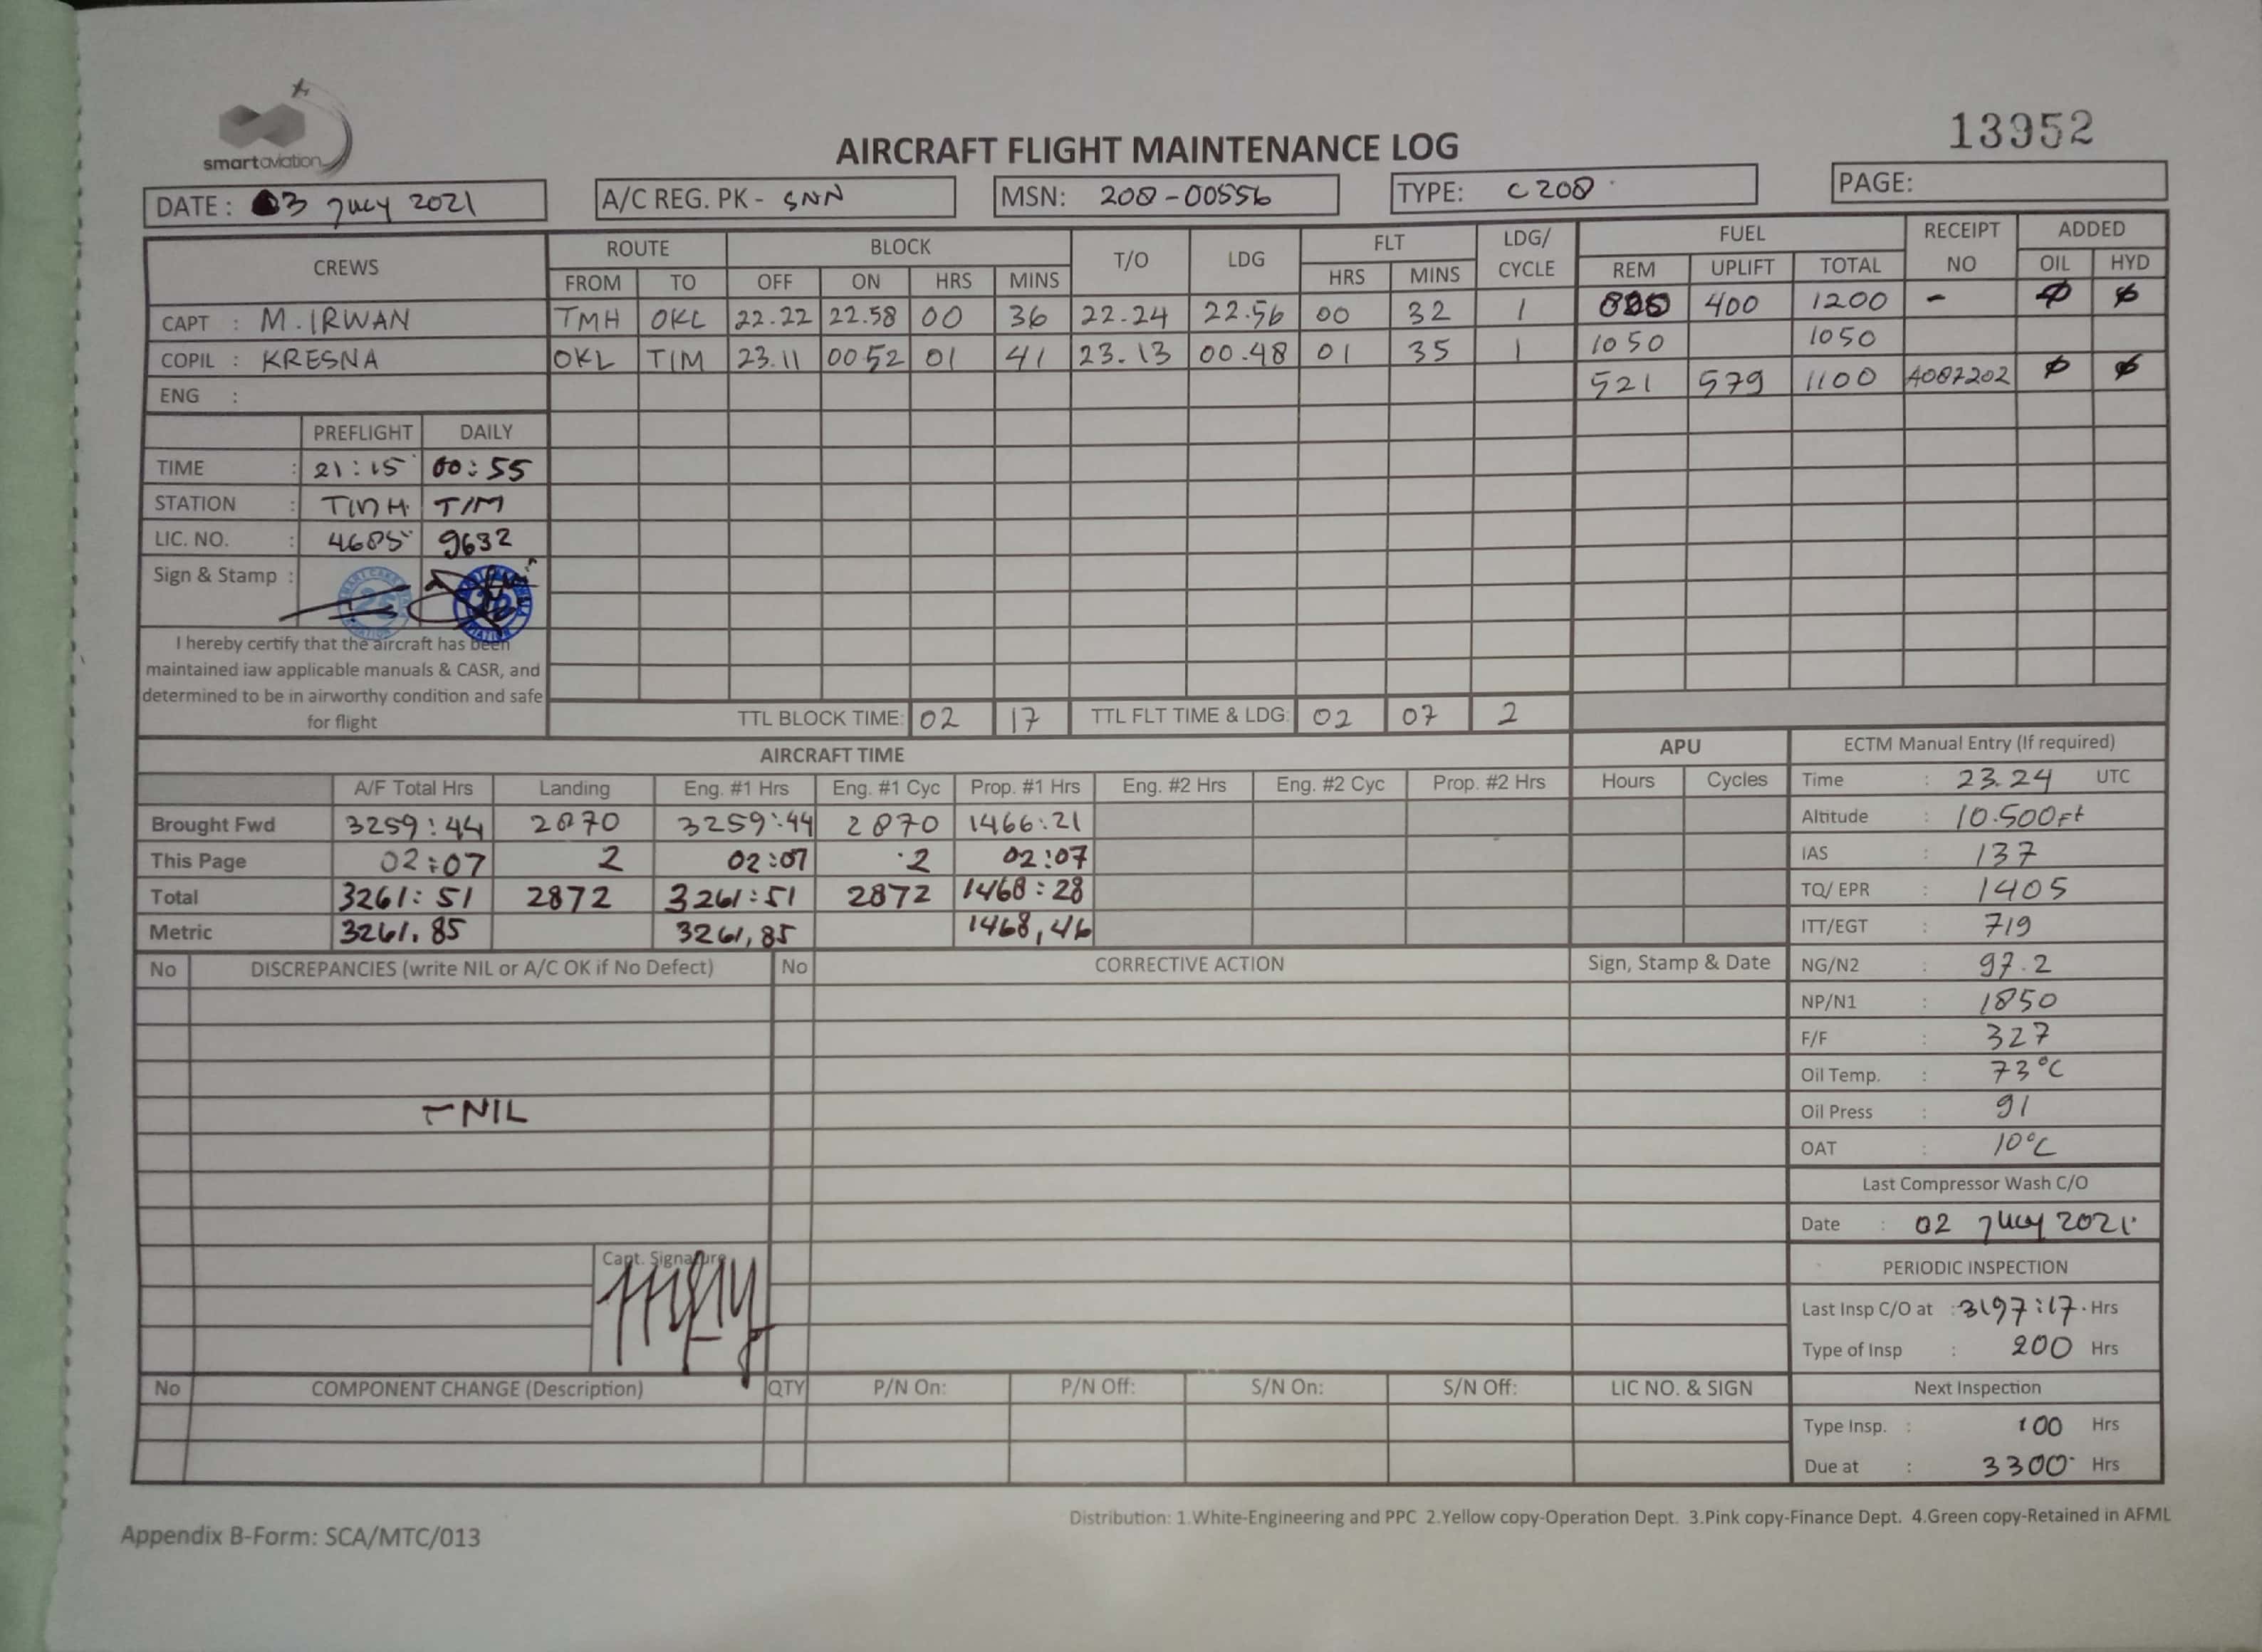 smartaviation
13952
AIRCRAFT FLIGHT MAINTENANCE LOG
DATE: 03 July 2021 A/C REG. PK - SNN MSN: 208-00556 TYPE: C208 PAGE:
CREWS ROUTE BLOCK T/O LDG FLT LDG/ CYCLE FUEL RECEIPT NO ADDED
FROM TO OFF ON HRS MINS HRS MINS REM UPLIFT TOTAL OIL HYD
CAPT : M. IRWAN TMH OKL 22.22 22.58 00 36 22.24 22.56 00 32 1 400 1200 - ∅ ∅
COPIL : KRESNA OKL TIM 23.11 00 52 01 41 23.13 00.48 01 35 1 1050 1050
ENG : 521 579 1100 A087202 ∅ ∅
PREFLIGHT DAILY
TIME : 21:15 00:55
STATION : TMH TIM
LIC. NO. : 4685 9632
Sign & Stamp :
I hereby certify that the aircraft has been
maintained iaw applicable manuals & CASR, and
determined to be in airworthy condition and safe
for flight
TTL BLOCK TIME: 02 17 TTL FLT TIME & LDG: 02 07 2
AIRCRAFT TIME APU ECTM Manual Entry (If required)
A/F Total Hrs Landing Eng. #1 Hrs Eng. #1 Cyc Prop. #1 Hrs Eng. #2 Hrs Eng. #2 Cyc Prop. #2 Hrs Hours Cycles Time : 23.24 UTC
Brought Fwd 3259:44 2870 3259:44 2870 1466:21 Altitude : 10.500Ft
This Page 02:07 2 02:07 2 02:07 IAS : 137
Total 3261:51 2872 3261:51 2872 1468:28 TQ/ EPR : 1405
Metric 3261.85 3261,85 1468,46 ITT/EGT : 719
No DISCREPANCIES (write NIL or A/C OK if No Defect) No CORRECTIVE ACTION Sign, Stamp & Date NG/N2 : 97.2
NP/N1 : 1850
F/F : 327
Oil Temp. : 73°C
- NIL Oil Press : 91
OAT : 10°C
Last Compressor Wash C/O
Date : 02 July 2021
Capt. Signature
PERIODIC INSPECTION
Last Insp C/O at : 3197:17 Hrs
Type of Insp : 200 Hrs
No COMPONENT CHANGE (Description) QTY P/N On: P/N Off: S/N On: S/N Off: LIC NO. & SIGN Next Inspection
Type Insp. : 100 Hrs
Due at : 3300 Hrs
Distribution: 1.White-Engineering and PPC 2.Yellow copy-Operation Dept. 3.Pink copy-Finance Dept. 4.Green copy-Retained in AFML
Appendix B-Form: SCA/MTC/013